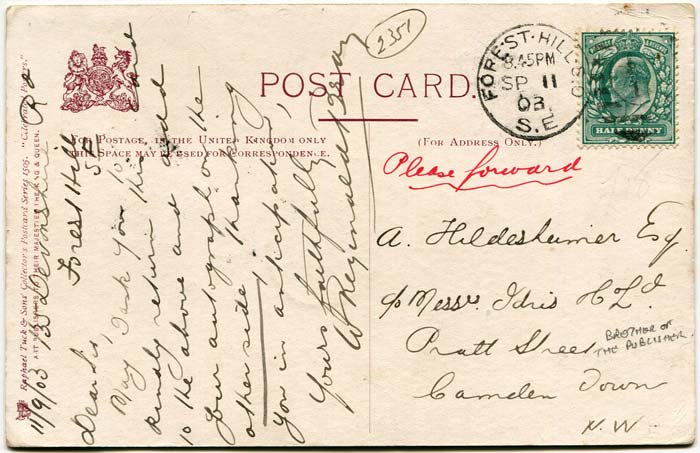 2351
POST CARD.
FOREST-HILL
8.45PM
SP 11
03
S.E
HALF PENNY
FOR POSTAGE, IN THE UNITED KINGDOM ONLY
THIS SPACE MAY BE USED FOR CORRESPONDENCE.
(FOR ADDRESS ONLY.)
Please forward
A. Hildesheimer Esq.
c/o Messrs Idris & Co Ld.
Pratt Street
Camden Town
N.W
BROTHER OF
THE PUBLISHER.
Raphael Tuck & Sons' Collector's Postcard Series 1505. "Celebrated Posters."
ART PUBLISHERS TO THEIR MAJESTIES THE KING & QUEEN.
11/9/03 Devonshire Rd
Forest Hill
SE
Dear Sir,
May I ask you to
kindly return this card
to the above and send
your autograph on the
other side. Thanking
you in anticipation,
Yours faithfully
W Reginald Bray